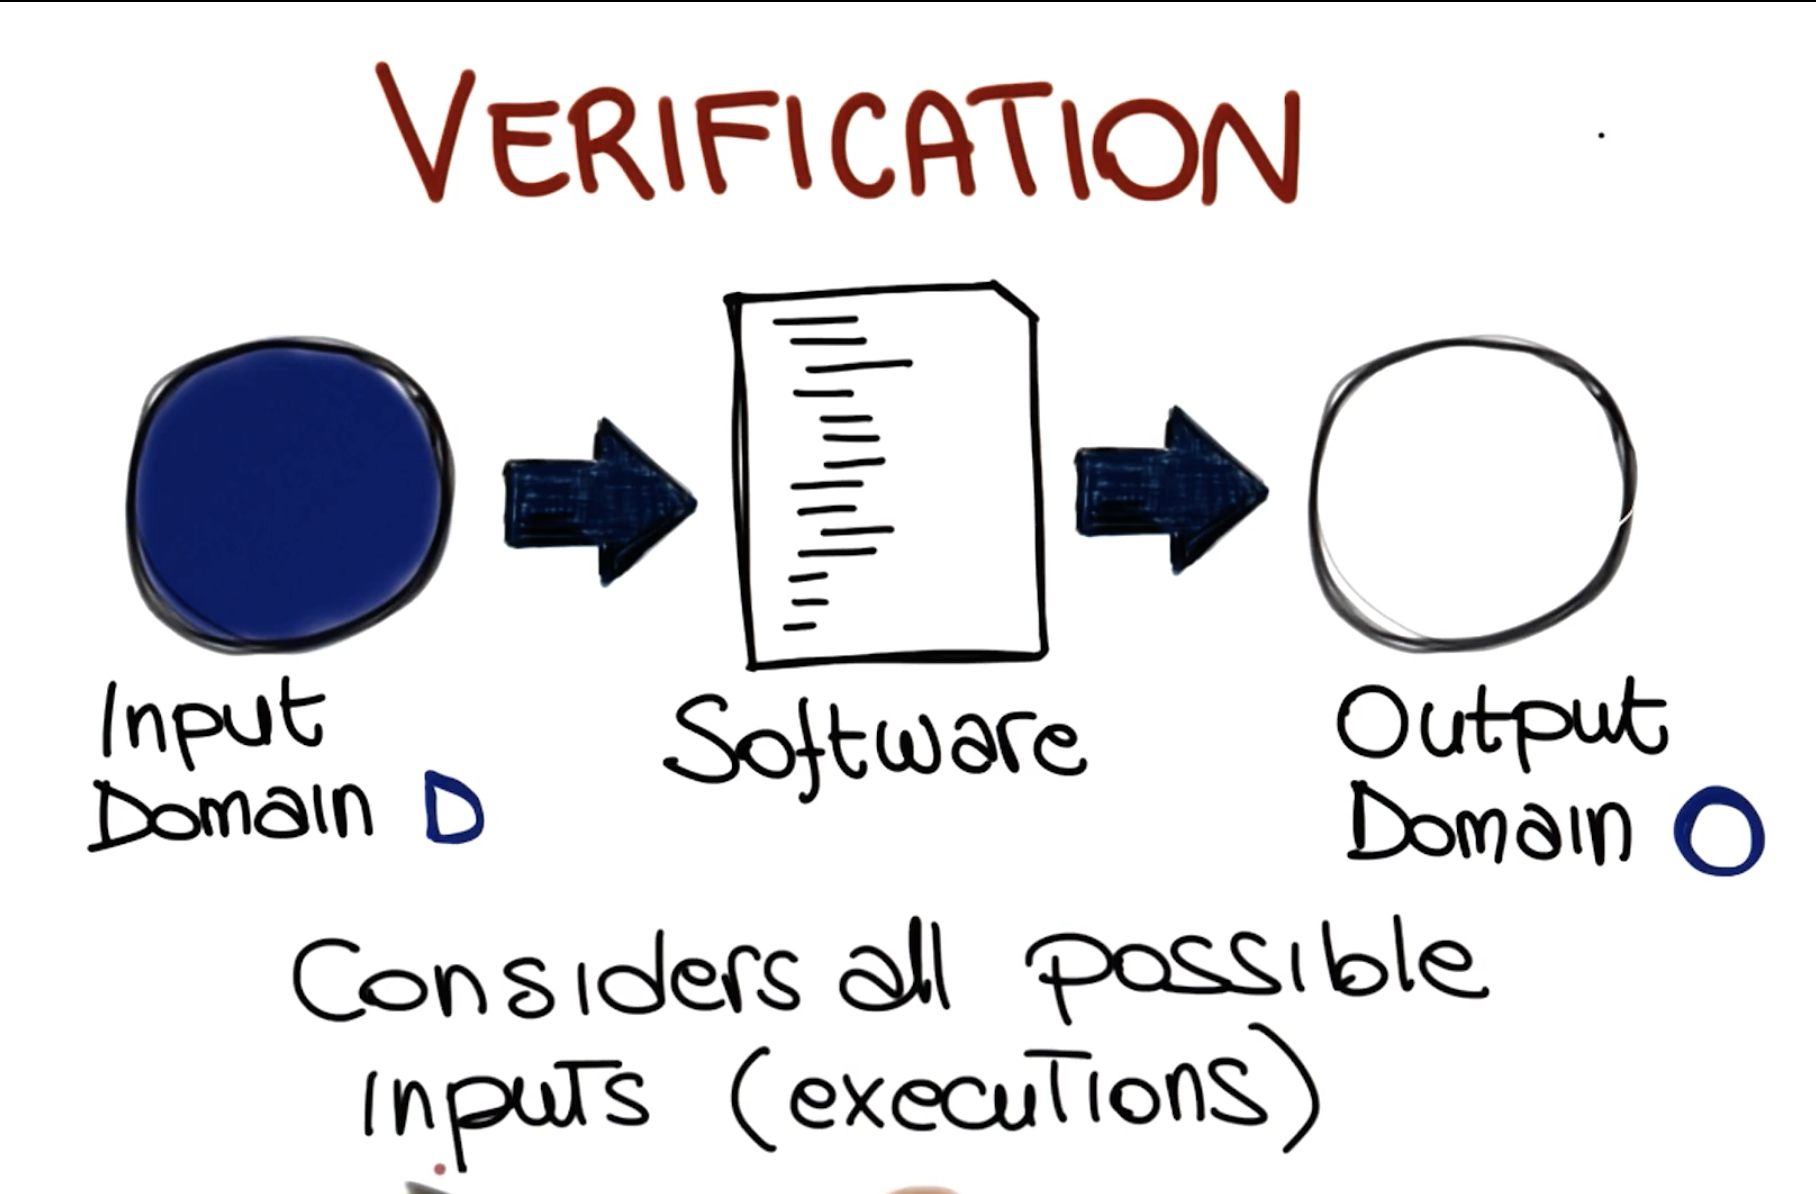 VERIFICATION
Input
Domain D
Software
Output
Domain O
Considers all possible
inputs (executions)